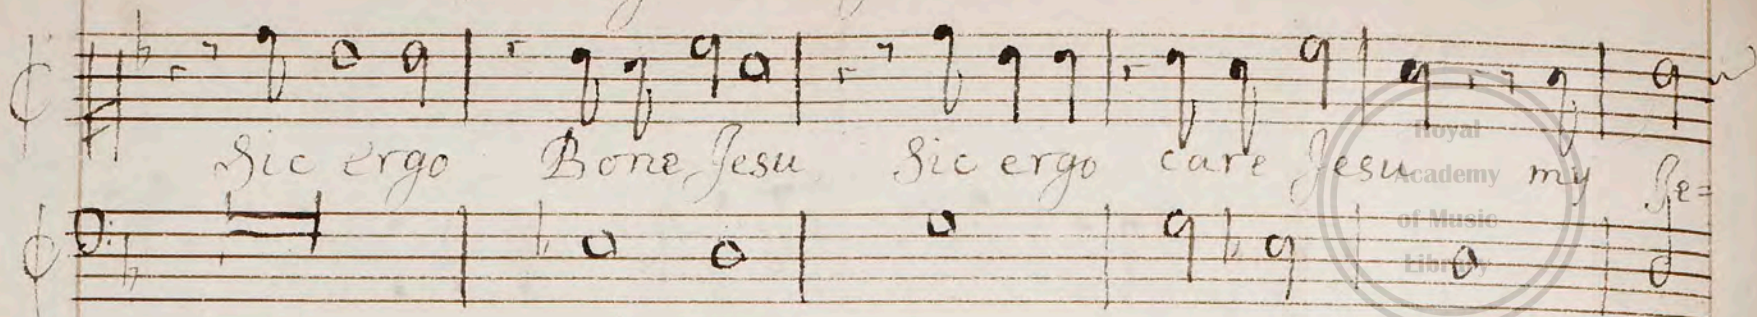 Sic ergo Bone Jesu Sic ergo care Jesu my Je=
Royal
Academy
of Music
Library